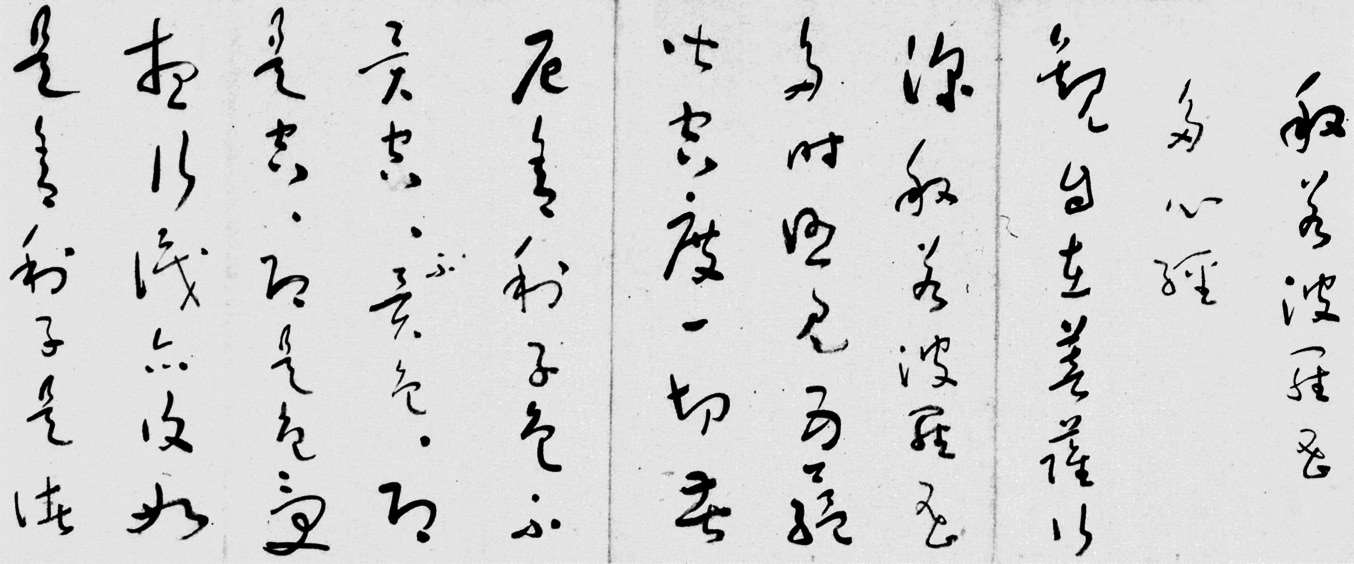 般若波羅蜜
多心經
觀自在菩薩行
深般若波羅蜜
多時照見五蘊
皆空度一切苦
厄舍利子色不
異空、、不異色、即
是空、即是色受
想行識亦復如
是舍利子是諸